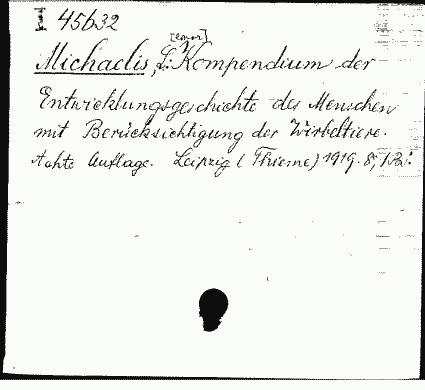 I 45632
[eonor]
Michaelis, L: Kompendium der
Entwicklungsgeschichte des Menschen
mit Berücksichtigung der Wirbeltiere.
Achte Auflage. Leipzig (Thieme) 1919. 8;